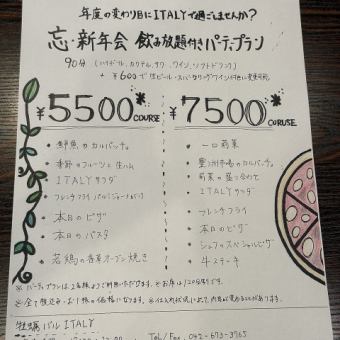 年度の変わり目にITALYで過ごしませんか?
忘・新年会 飲み放題付きパーティプラン
90分 (ハイボール、カクテル、サワー、ワイン、ソフトドリンク)
+ ¥600で生ビール・スパークリングワイン付きに変更可能
¥5500* COURSE
・鮮魚のカルパッチョ
・季節のフルーツと生ハム
・ITALYサラダ
・フレンチフライ
・本日のピザ
・本日のパスタ
・若鶏の香草オーブン焼き
¥7500* CORUSE
・一口前菜
・豊洲市場のカルパッチョ
・前菜の盛り合わせ
・ITALYサラダ
・フレンチフライ
・本日のピザ
・シェフのスペシャルピザ
・牛ステーキ
※パーティープランは2名様よりご利用いただけます。※お席は120分制です。
※全て税込み・お1人様の価格になります。※仕入れ状況によって内容は変わることがあります。
牡蠣バル ITALY
Tel/Fax. 042-673-3765